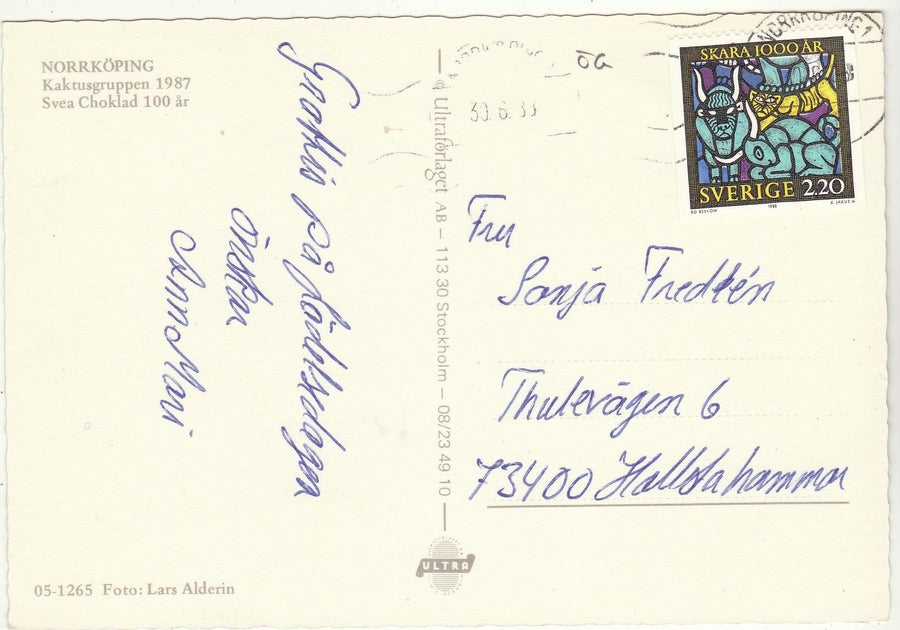 NORRKÖPING
Kaktusgruppen 1987
Svea Choklad 100 år
Grattis på födelsedagen
önskar
AnnMari
© Ultraförlaget AB – 113 30 Stockholm – 08/23 49 10
ULTRA
05-1265 Foto: Lars Alderin
NORRKÖPING 1
ÖG
30.6.
SKARA 1000 ÅR
SVERIGE 2.20
BO BESKOW 1988 Z. JAKUS H
Fru
Sonja Fredlén
Thulevägen 6
73400 Hallstahammar